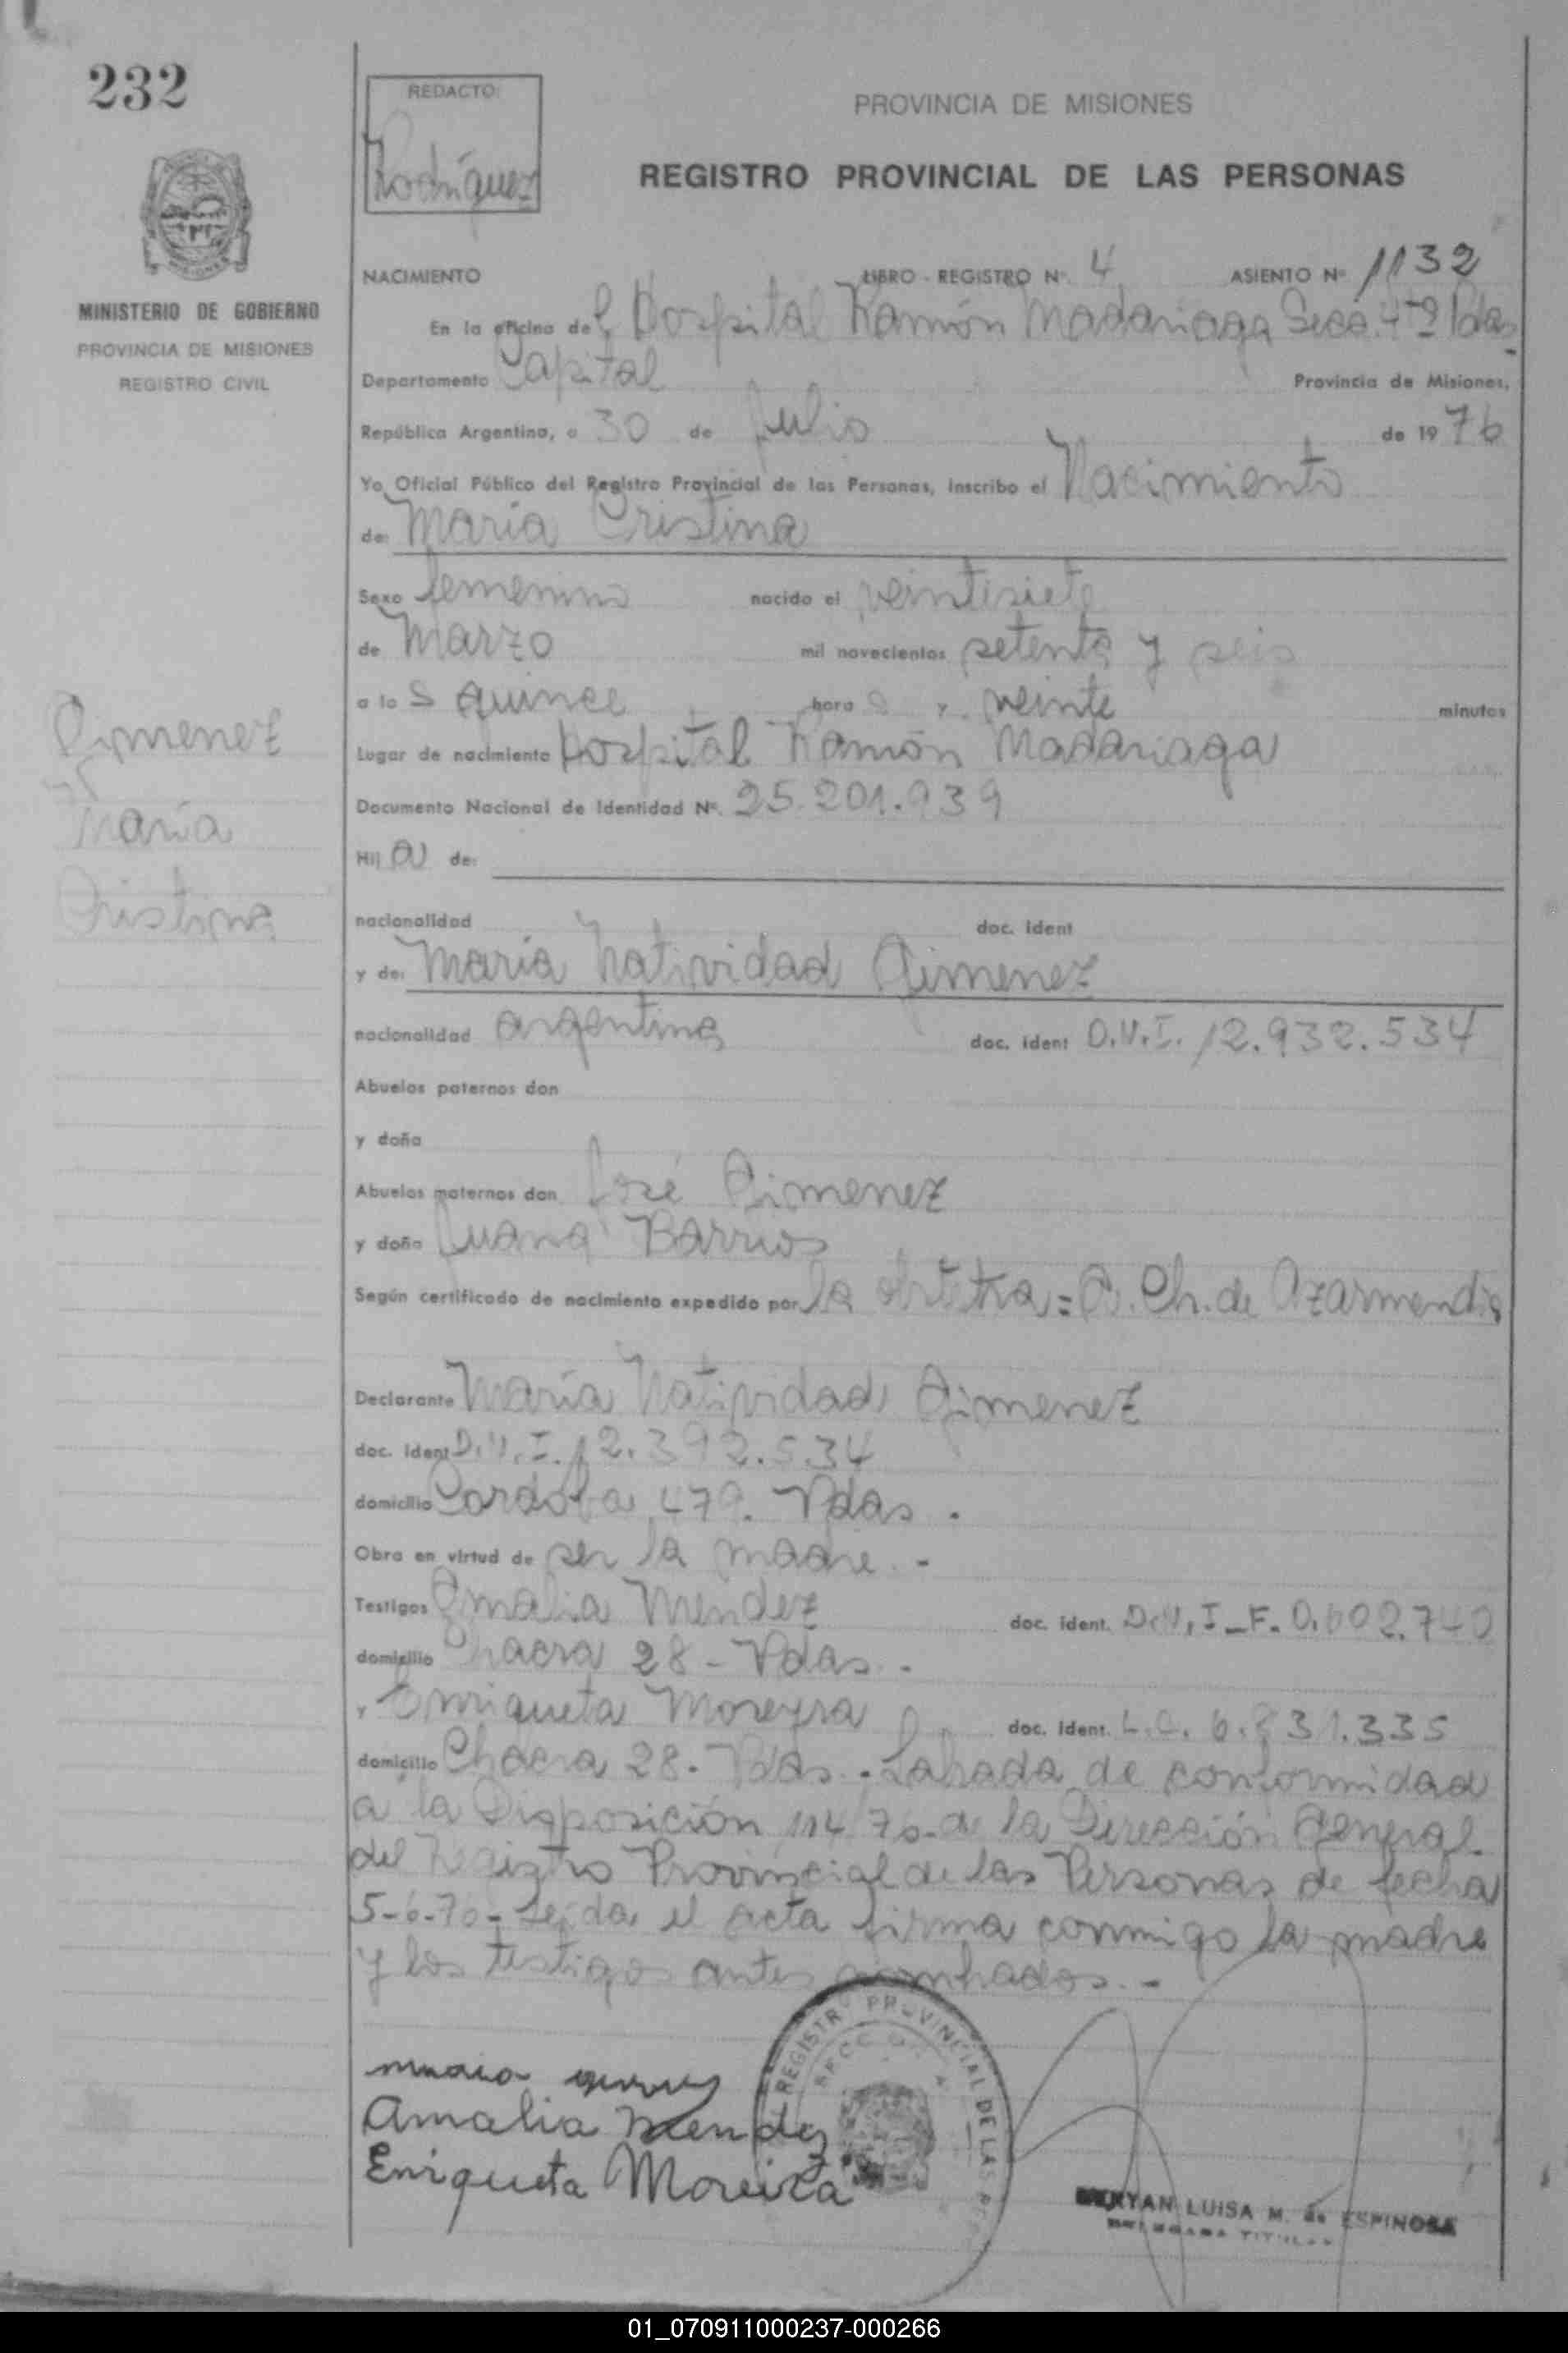 232
REDACTO:
Rodríguez
PROVINCIA DE MISIONES
REGISTRO PROVINCIAL DE LAS PERSONAS
MINISTERIO DE GOBIERNO
PROVINCIA DE MISIONES
REGISTRO CIVIL
NACIMIENTO LIBRO - REGISTRO Nº. 4 ASIENTO Nº 1132
En la oficina del Hospital Ramón Madariaga Secc. 4ta Pdas
Departamento Capital Provincia de Misiones,
República Argentina, a 30 de Julio de 1976
Yo, Oficial Público del Registro Provincial de las Personas, inscribo el Nacimiento
de: María Cristina
Sexo femenino nacido el veintisiete
de Marzo mil novecientos setenta y seis
a las quince horas y veinte minutos
Lugar de nacimiento Hospital Ramón Madariaga
Documento Nacional de Identidad Nº. 25.201.939
Hija de:
nacionalidad doc. ident
y de: María Natividad Gimenez
nacionalidad argentina doc. ident D.N.I. 12.932.534
Abuelos paternos don
y doña
Abuelos maternos don José Gimenez
y doña Juana Barrios
Según certificado de nacimiento expedido por la Ch. de Azarmendia
Declarante María Natividad Gimenez
doc. ident D.N.I. 12.392.534
domicilio Cordoba 479. Pdas.
Obra en virtud de ser la madre.-
Testigos Amalia Mendez doc. ident. D.N.I-F. 0.602.740
domicilio Chacra 28 - Pdas.-
y Enriqueta Moreyra doc. ident. L.C. 6.831.335
domicilio Chacra 28. Pdas.- Labrada de conformidad
a la Disposición 114/70 de la Dirección General
del Registro Provincial de las Personas de fecha
5-6-70- Leída el acta firma conmigo la madre
y los testigos antes nombrados.-
Gimenez
María
Cristina
Amalia Mendez
Enriqueta Moreira
REGISTRO PROVINCIAL DE LAS
LUISA M. de ESPINOSA
TITULAR
01_070911000237-000266